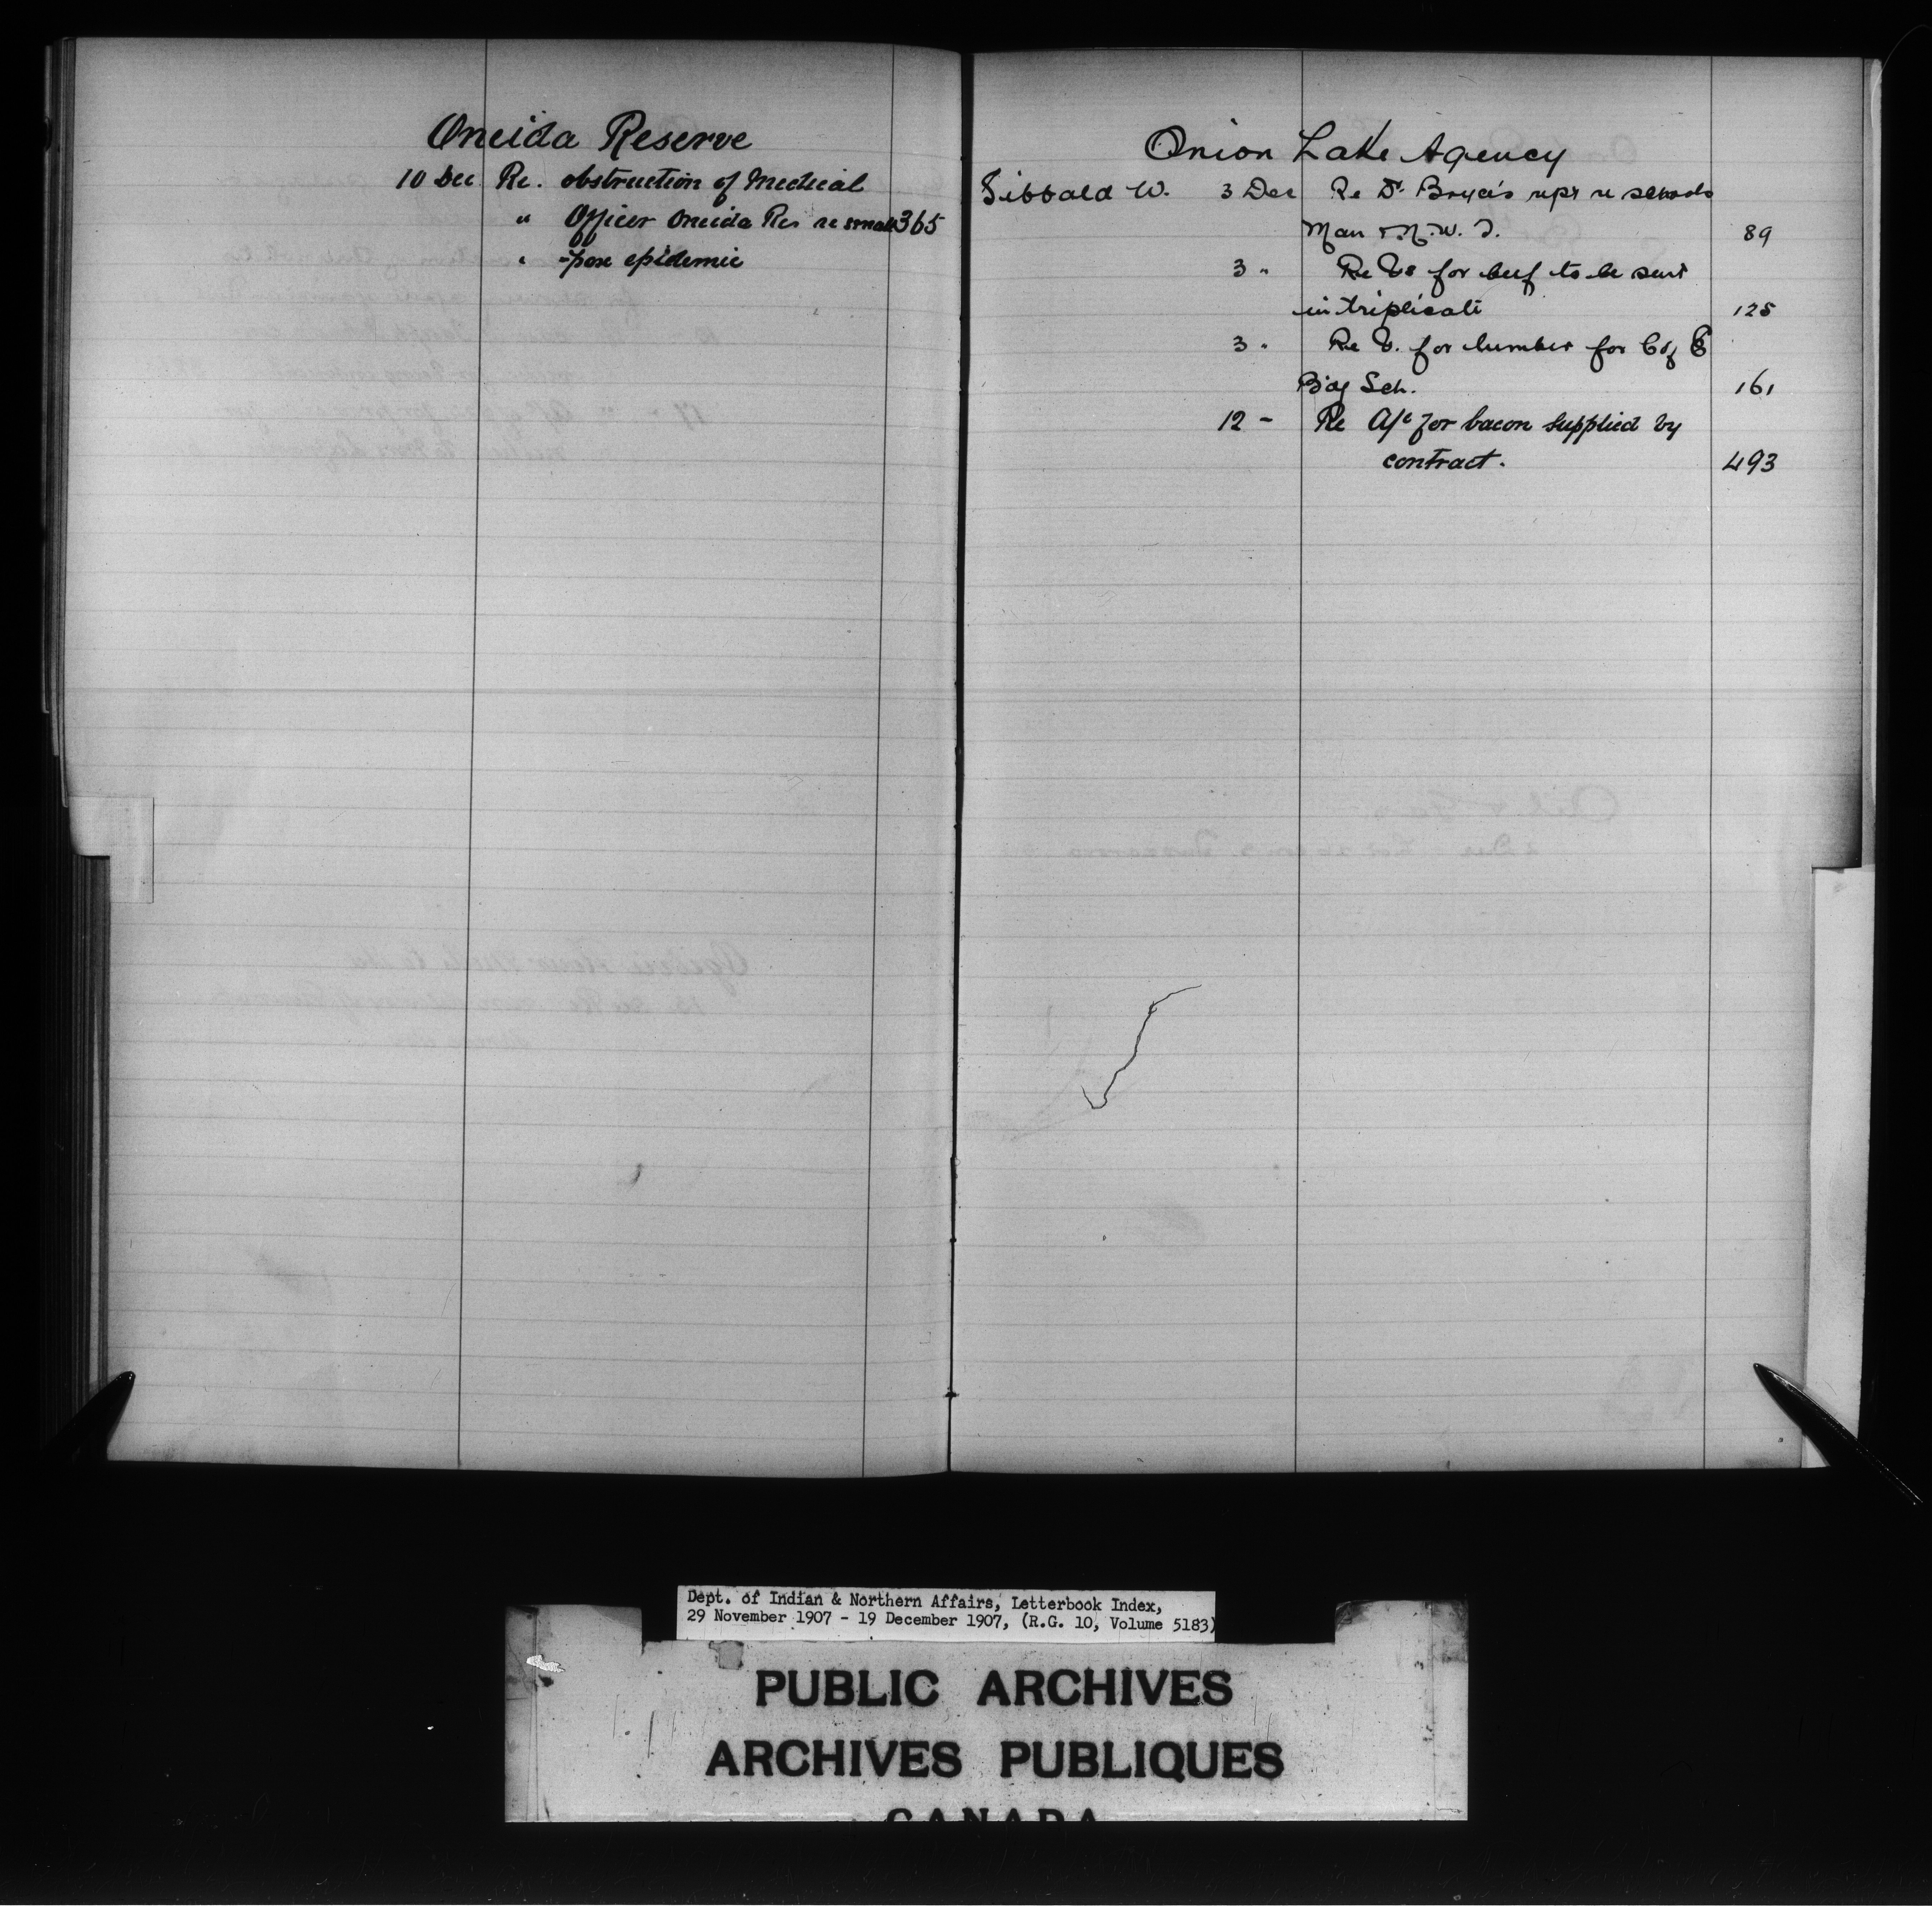 Oneida Reserve
10 Dec Re. obstruction of Medical
" Officer Oneida Res re small 365
" -pox epidemic
Onion Lake Agency
Sibbald W. 3 Dec Re Dr Bryce's rept re schools
Man & N.W.T. 89
3 " Re Vs for beef to be sent
in triplicate 125
3 " Re V. for lumber for C of E
B'dg Sch. 161
12 - Re A/c for bacon supplied by
contract. 493
Dept. of Indian & Northern Affairs, Letterbook Index,
29 November 1907 - 19 December 1907, (R.G. 10, Volume 5183)
PUBLIC ARCHIVES
ARCHIVES PUBLIQUES
CANADA